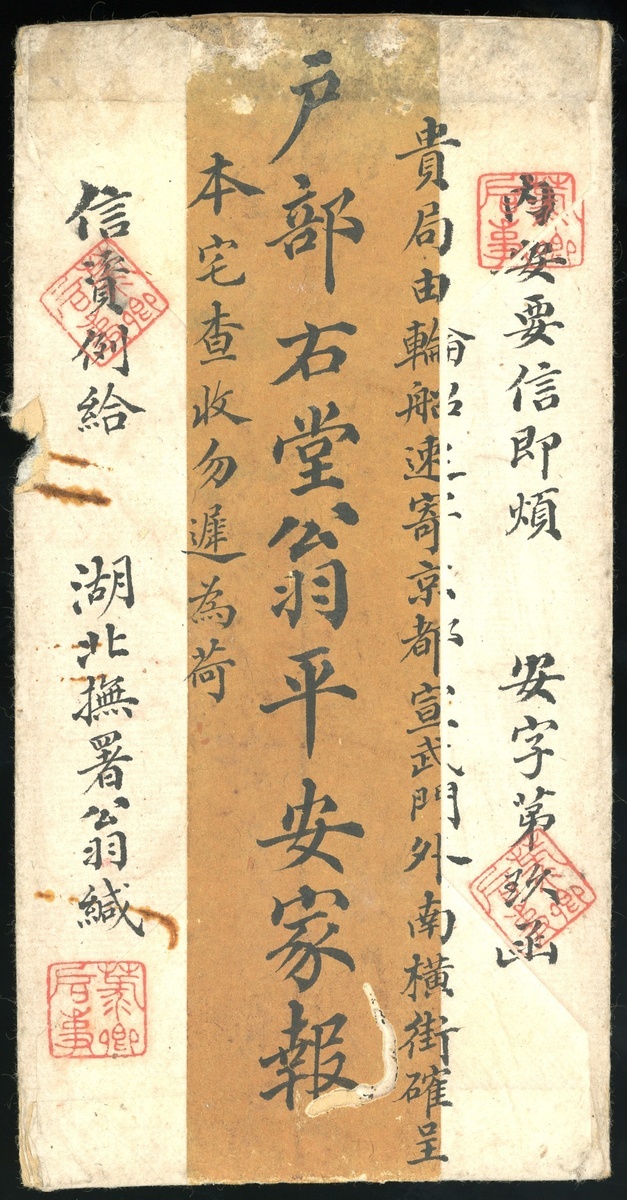 內安要信即煩 安字第玖函
貴局由輪船速寄京都宣武門外南橫街確呈
戶部右堂翁平安家報
本宅查收勿遲為荷
信資例給 湖北撫署翁緘